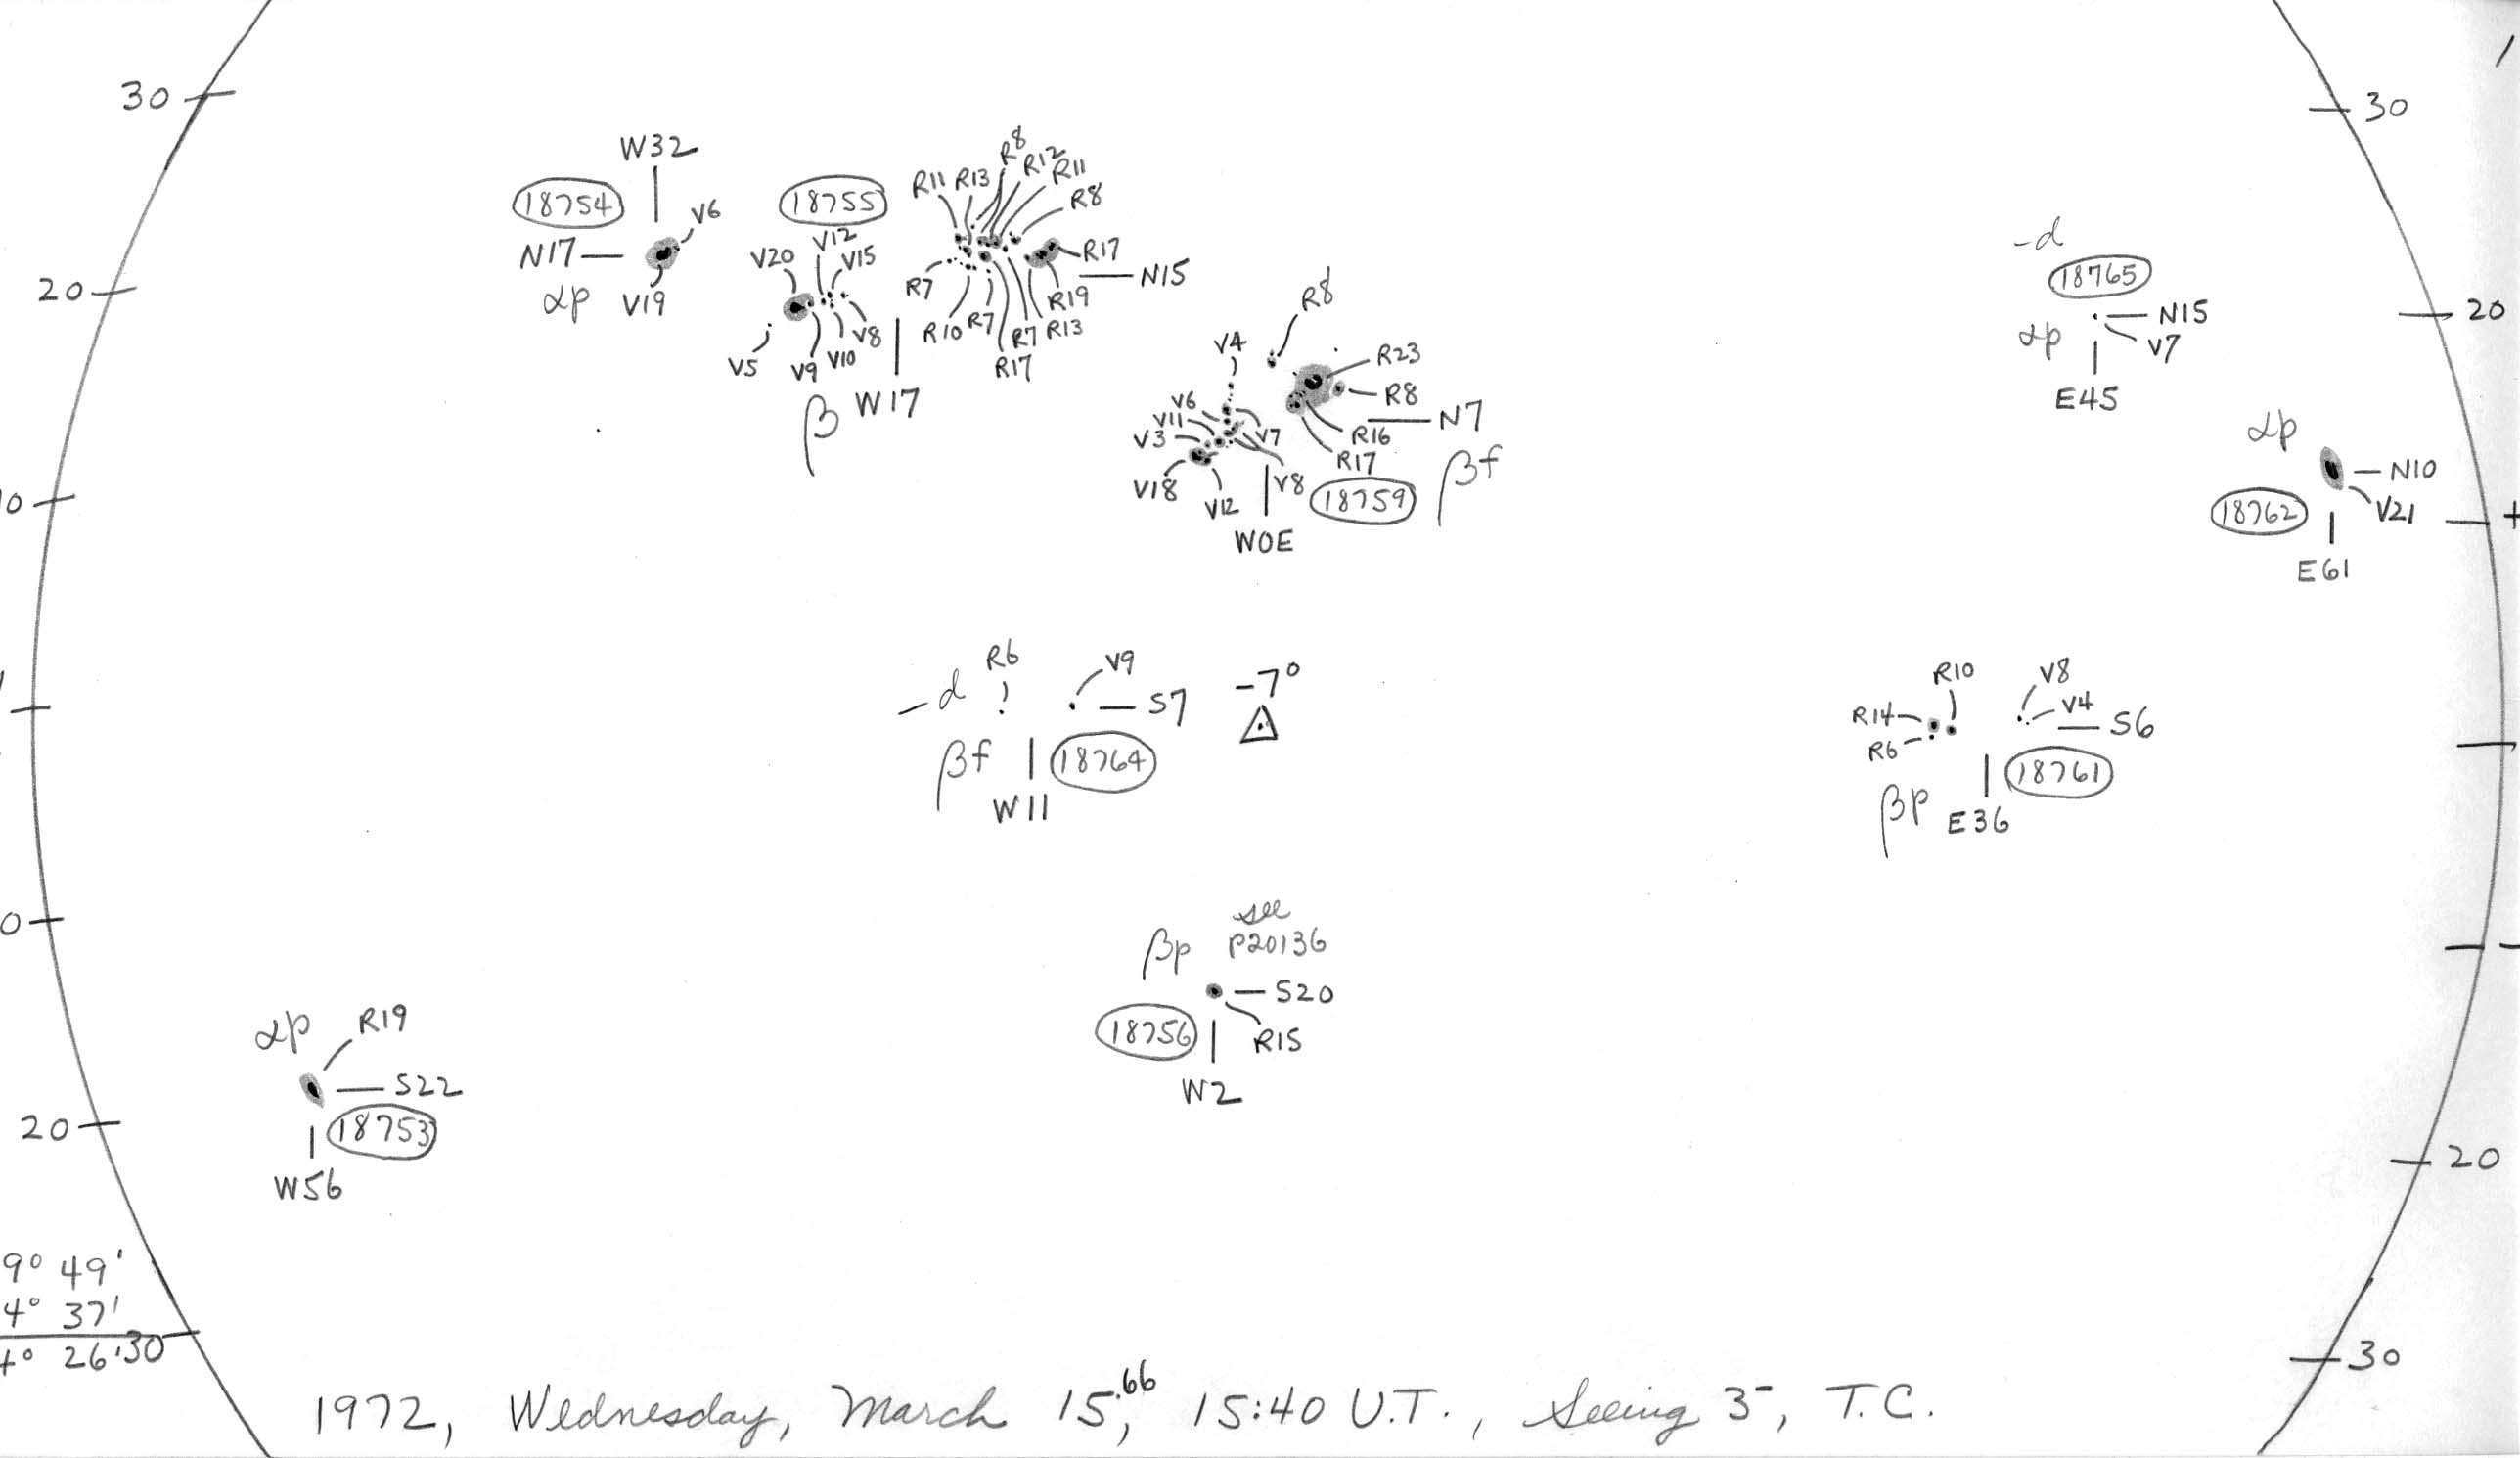 30
30
W32
18754
V6
N17
αp
V19
18755
V12
V20
V15
V5
V9
V10
V8
β
W17
R8
R11
R13
R12
R11
R8
R17
N15
R7
R19
R10
R7
R7
R13
R17
20
20
-d
18765
αp
N15
V7
E45
R8
V4
R23
R8
V6
V11
V3
V7
N7
R16
R17
βf
V18
V12
V8
18759
W0E
αp
N10
18762
V21
E61
0
+
-d
R6
V9
S7
-7°
βf
18764
W11
R10
V8
R14
V4
S6
R6
18761
βp
E36
0
-
see
βp
P20136
S20
18756
R15
W2
αp
R19
S22
18753
W56
20
20
9° 49'
4° 37'
4° 26'
30
30
1972, Wednesday, March 15.66, 15:40 U.T., Seeing 3-, T.C.